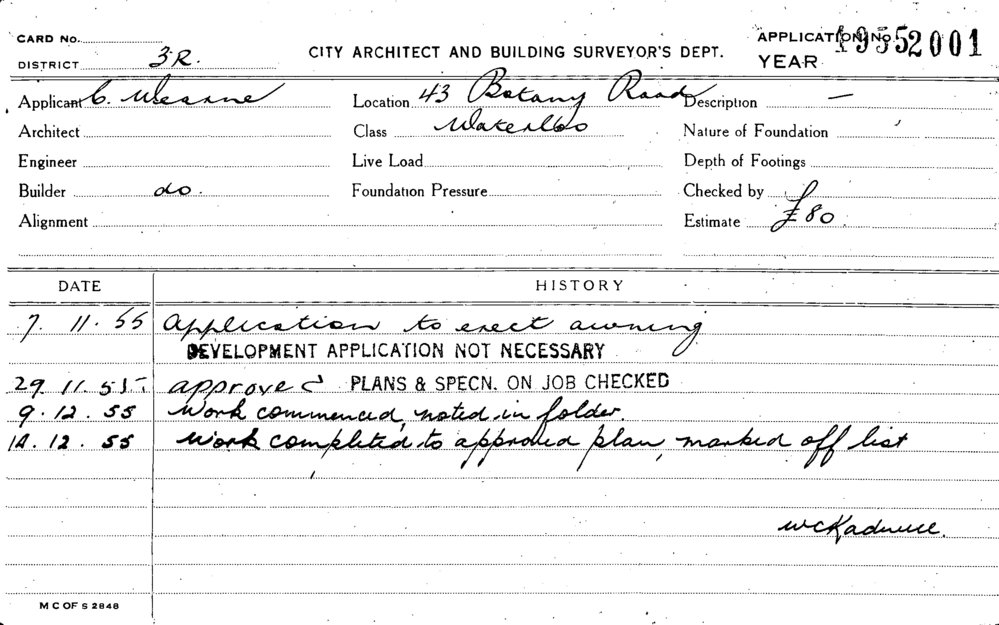 CARD No.
APPLICATION No. 1955 2001
DISTRICT 3R.
CITY ARCHITECT AND BUILDING SURVEYOR'S DEPT.
YEAR
Applicant C. Location 43 Botany Road Description —
Architect Class Waterloo Nature of Foundation
Engineer Live Load Depth of Footings
Builder do. Foundation Pressure Checked by
Alignment Estimate £80.
DATE HISTORY
7. 11. 55 Application to erect awning
DEVELOPMENT APPLICATION NOT NECESSARY
29. 11. 55 approved PLANS & SPECN. ON JOB CHECKED
9. 12. 55 Work commenced, noted in folder.
14. 12. 55 Work completed to approved plan, marked off list
M C OF S 2848